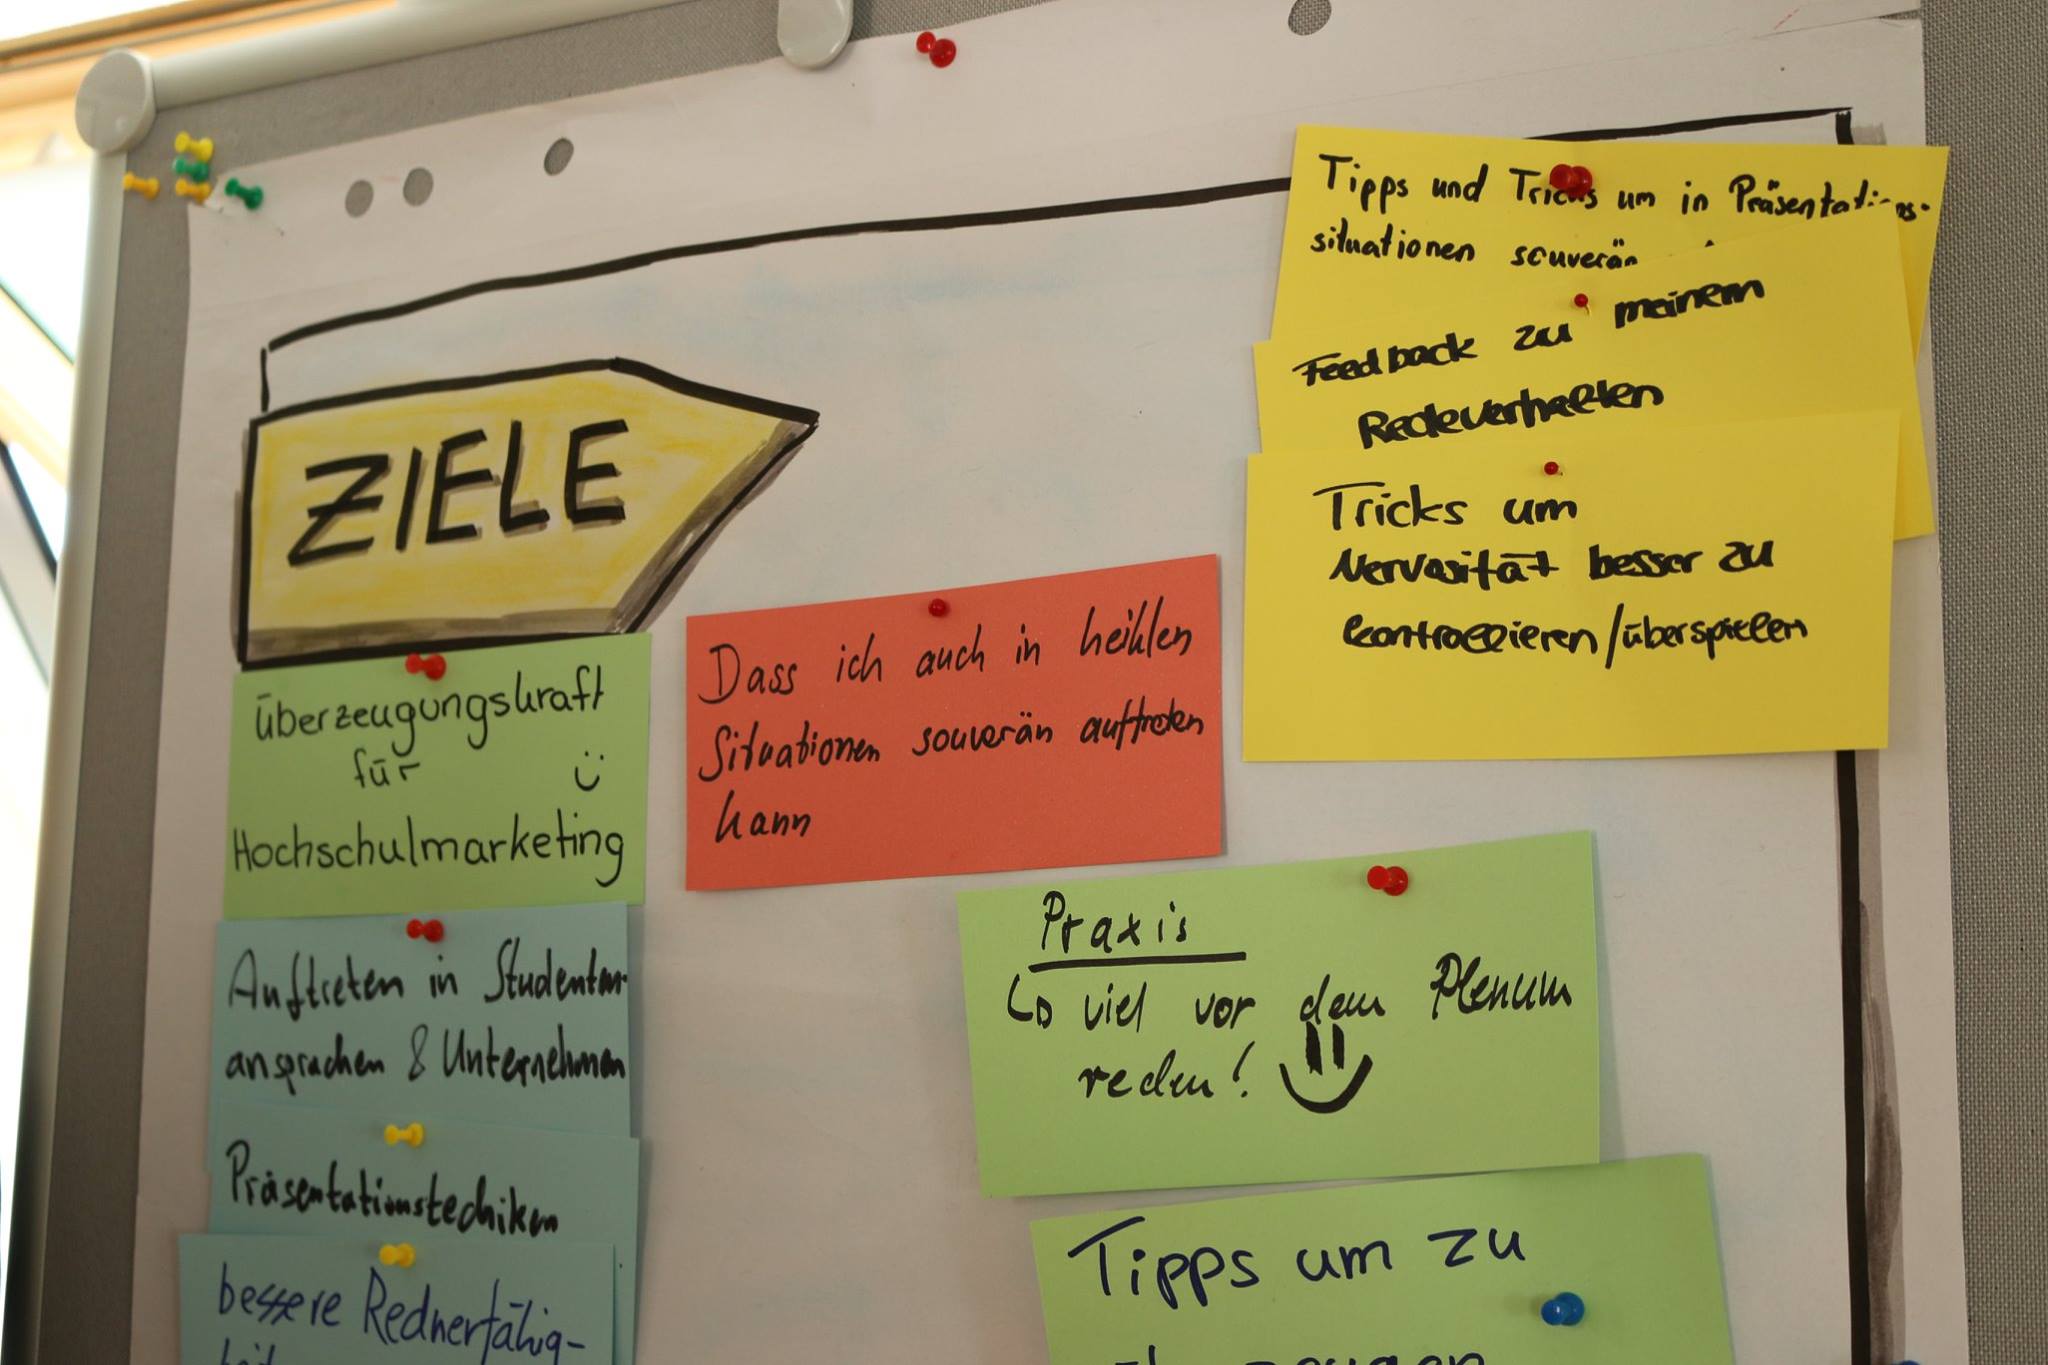 ZIELE
überzeugungskraft
für
Hochschulmarketing
Auftreten in Studenten-
ansprachen & Unternehmen
Präsentationstechniken
bessere Rednerfähig-
Dass ich auch in heiklen
Situationen souverän auftreten
kann
Tipps und Tricks um in Präsentations-
situationen souverän
Feedback zu meinem
Redeverhalten
Tricks um
Nervosität besser zu
kontrollieren/überspielen
Praxis
↳ viel vor dem Plenum
reden!
Tipps um zu